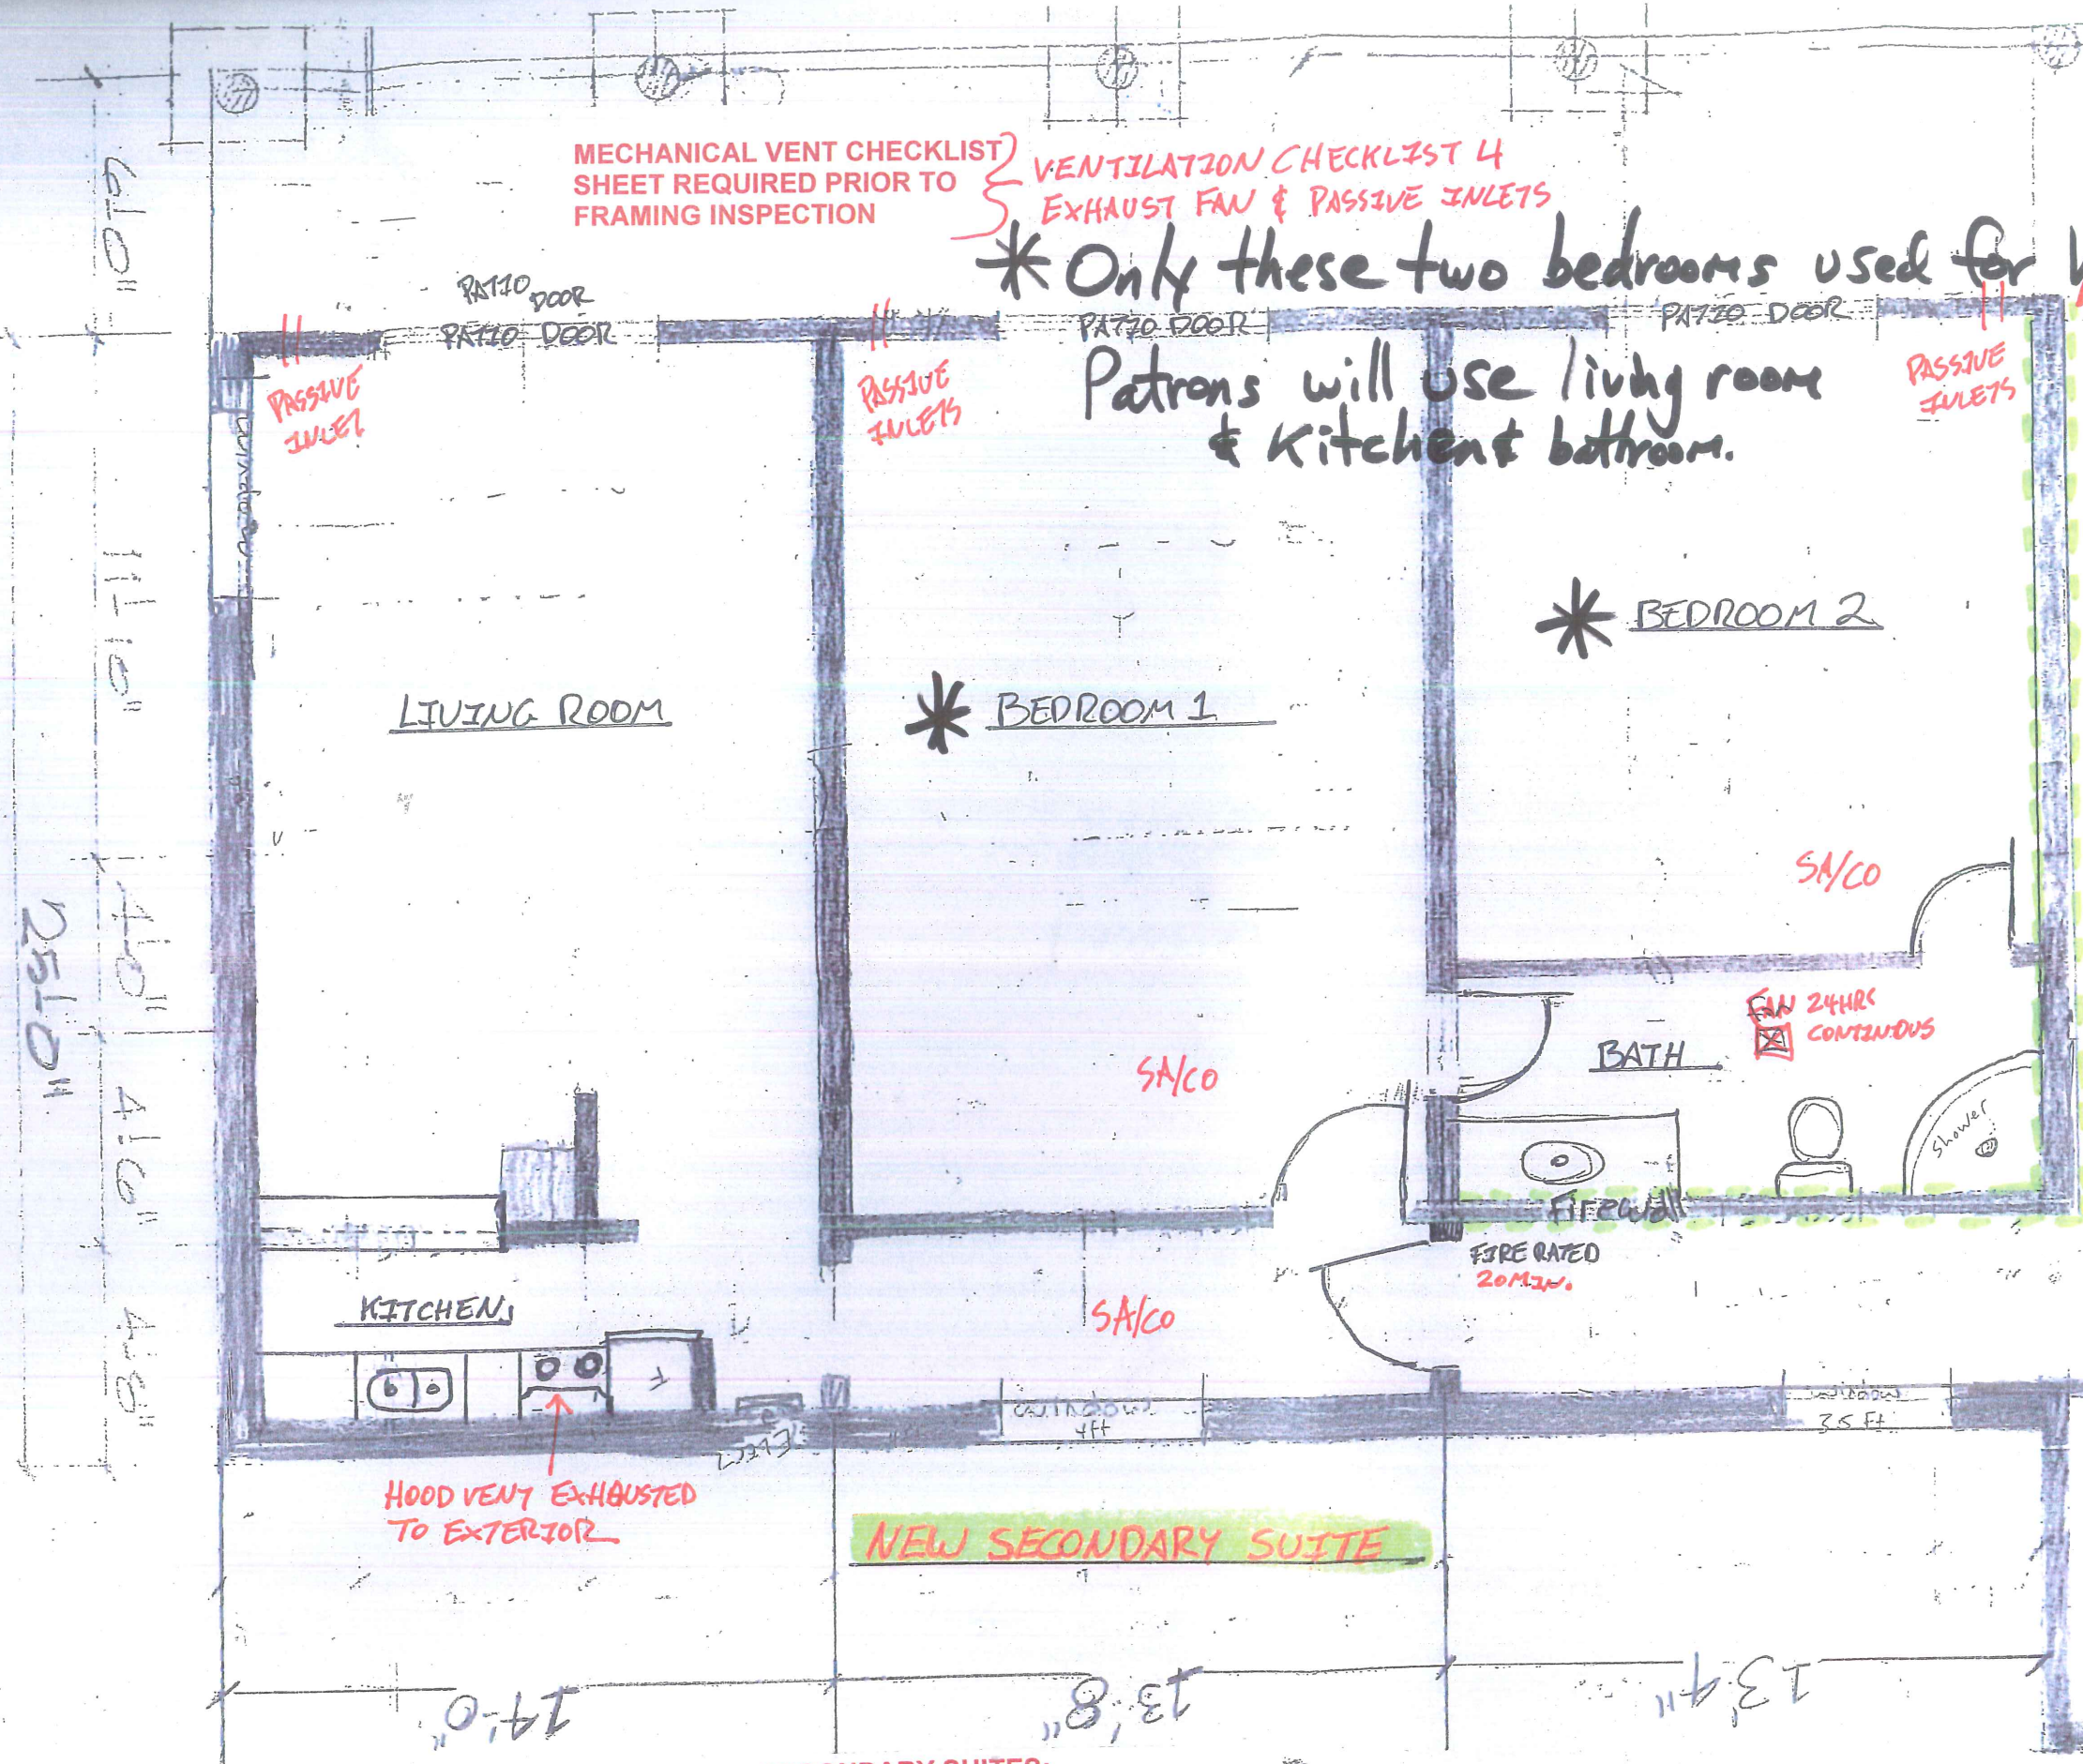 MECHANICAL VENT CHECKLIST
SHEET REQUIRED PRIOR TO
FRAMING INSPECTION
VENTILATION CHECKLIST 4
EXHAUST FAN & PASSIVE INLETS
* Only these two bedrooms used for
Patrons will use living room
& Kitchen & bathroom.
PATIO DOOR
PATIO DOOR
PATIO DOOR
PATIO DOOR
PASSIVE
INLET
PASSIVE
INLETS
PASSIVE
INLETS
window
LIVING ROOM
* BEDROOM 1
* BEDROOM 2
SA/CO
SA/CO
SA/CO
FAN 24HRS
CONTINUOUS
BATH
Shower
Firewall
FIRE RATED
20 MIN.
KITCHEN
F
window
4ft
window
3.5 Ft
HOOD VENT EXHAUSTED
TO EXTERIOR
NEW SECONDARY SUITE
6'-0"
11'-10"
4'-0"
4'-6"
4'-8"
25'-0"
14'-0"
13'-8"
13'4"